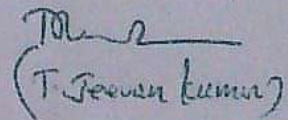 (T. Jeevan Kumar)